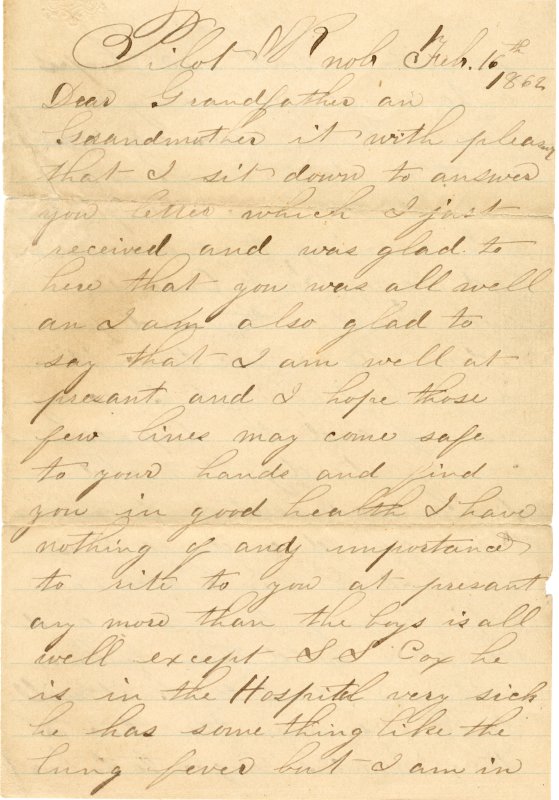 Pilot Knob Feb. 16th
1862
Dear Grandfather an
Grandmother it with pleasure
that I sit down to answer
you letter which I just
received and was glad to
here that you was all well
an I am also glad to
say that I am well at
presant and I hope those
few lines may come safe
to your hands and find
you in good health I have
nothing of andy importance
to rite to you at presant
any more than the boys is all
well except S S Cox he
is in the Hospital very sick
he has some thing like the
lung fever but I am in